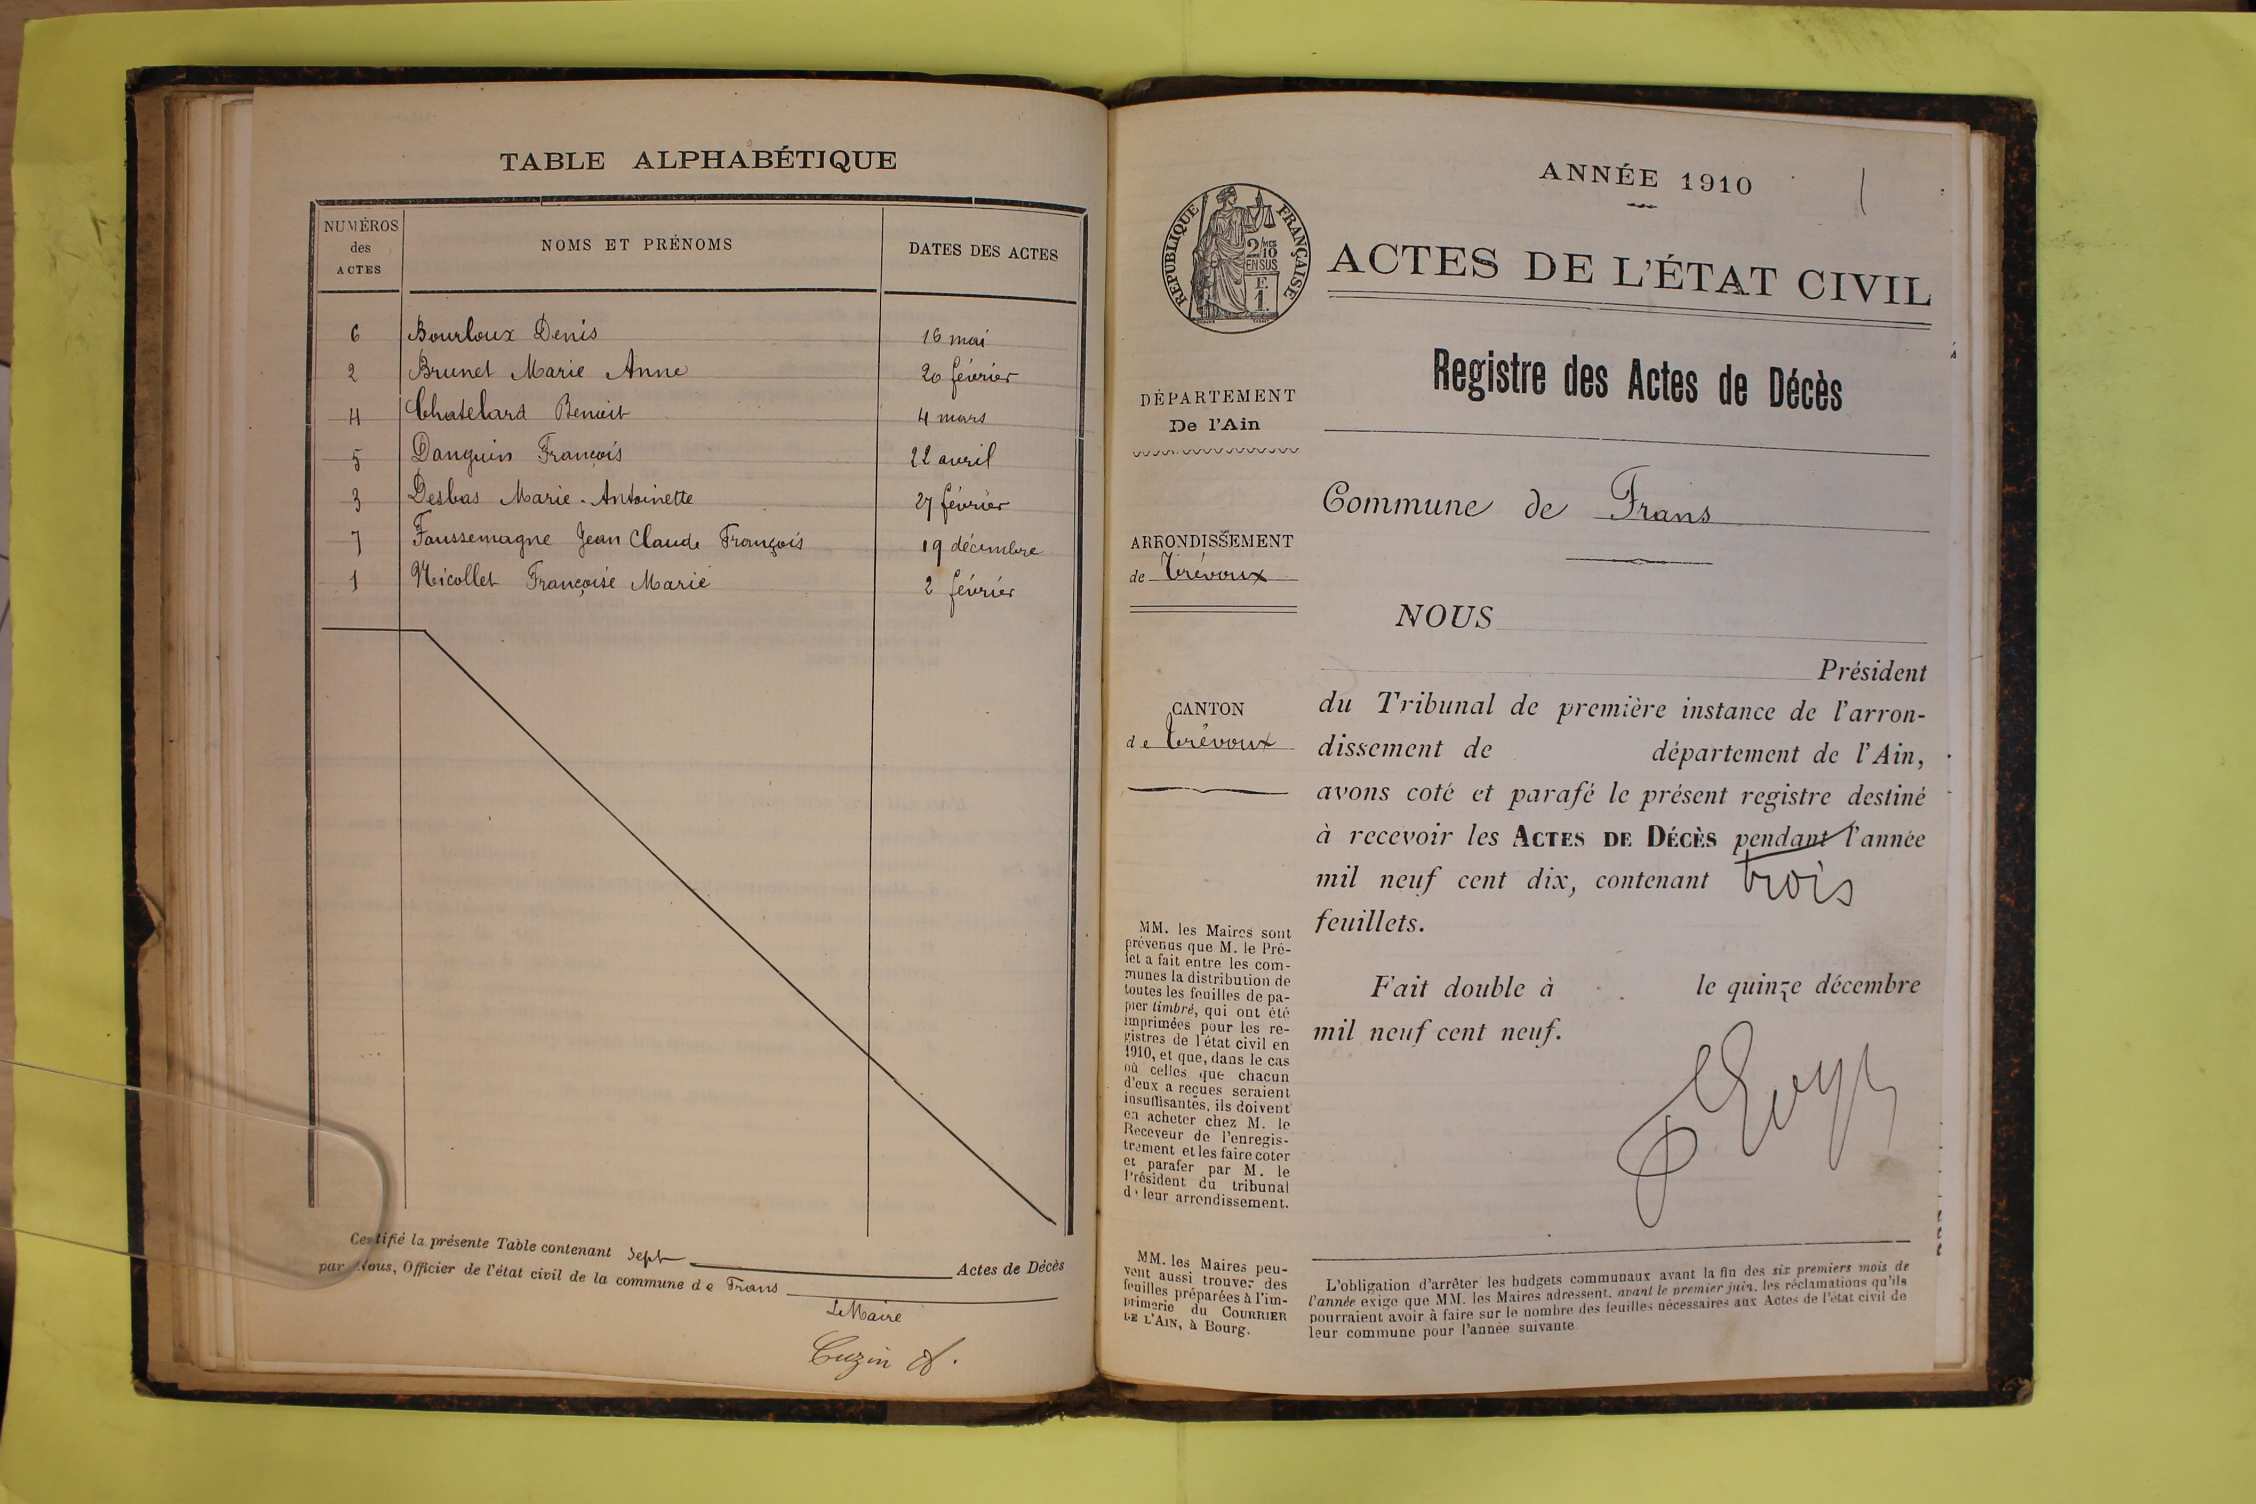 TABLE ALPHABÉTIQUE
NUMÉROS des ACTES NOMS ET PRÉNOMS DATES DES ACTES
6 Bourloux Denis 16 mai
2 Brunet Marie Anne 20 février
4 Chatelard Benoit 4 mars
5 Danguin François 22 avril
3 Desbas Marie-Antoinette 27 février
7 Faussemagne Jean Claude François 19 décembre
1 Nicollet Françoise Marie 2 février
Certifié la présente Table contenant sept Actes de Décès
par Nous, Officier de l'état civil de la commune de Frans
Le Maire
Cuzin
ANNÉE 1910
1
RÉPUBLIQUE FRANÇAISE
2/10
EN SUS
F.
1.
ACTES DE L'ÉTAT CIVIL
Registre des Actes de Décès
DÉPARTEMENT
De l'Ain
Commune de Frans
ARRONDISSEMENT
de Trévoux
CANTON
de Trévoux
NOUS
Président
du Tribunal de première instance de l'arron-
dissement de département de l'Ain,
avons coté et parafé le présent registre destiné
à recevoir les ACTES DE DÉCÈS pendant l'année
mil neuf cent dix, contenant trois
feuillets.
Fait double à le quinze décembre
mil neuf cent neuf.
MM. les Maires sont
prévenus que M. le Pré-
fet a fait entre les com-
munes la distribution de
toutes les feuilles de pa-
pier timbré, qui ont été
imprimées pour les re-
gistres de l'état civil en
1910, et que, dans le cas
où celles que chacun
d'eux a reçues seraient
insuffisantes, ils doivent
en acheter chez M. le
Receveur de l'enregis-
trement et les faire coter
et parafer par M. le
Président du tribunal
de leur arrondissement.
MM. les Maires peu-
vent aussi trouver des
feuilles préparées à l'im-
primerie du COURRIER
DE L'AIN, à Bourg.
L'obligation d'arrêter les budgets communaux avant la fin des six premiers mois de
l'année exige que MM. les Maires adressent, avant le premier juin, les réclamations qu'ils
pourraient avoir à faire sur le nombre des feuilles nécessaires aux Actes de l'état civil de
leur commune pour l'année suivante.